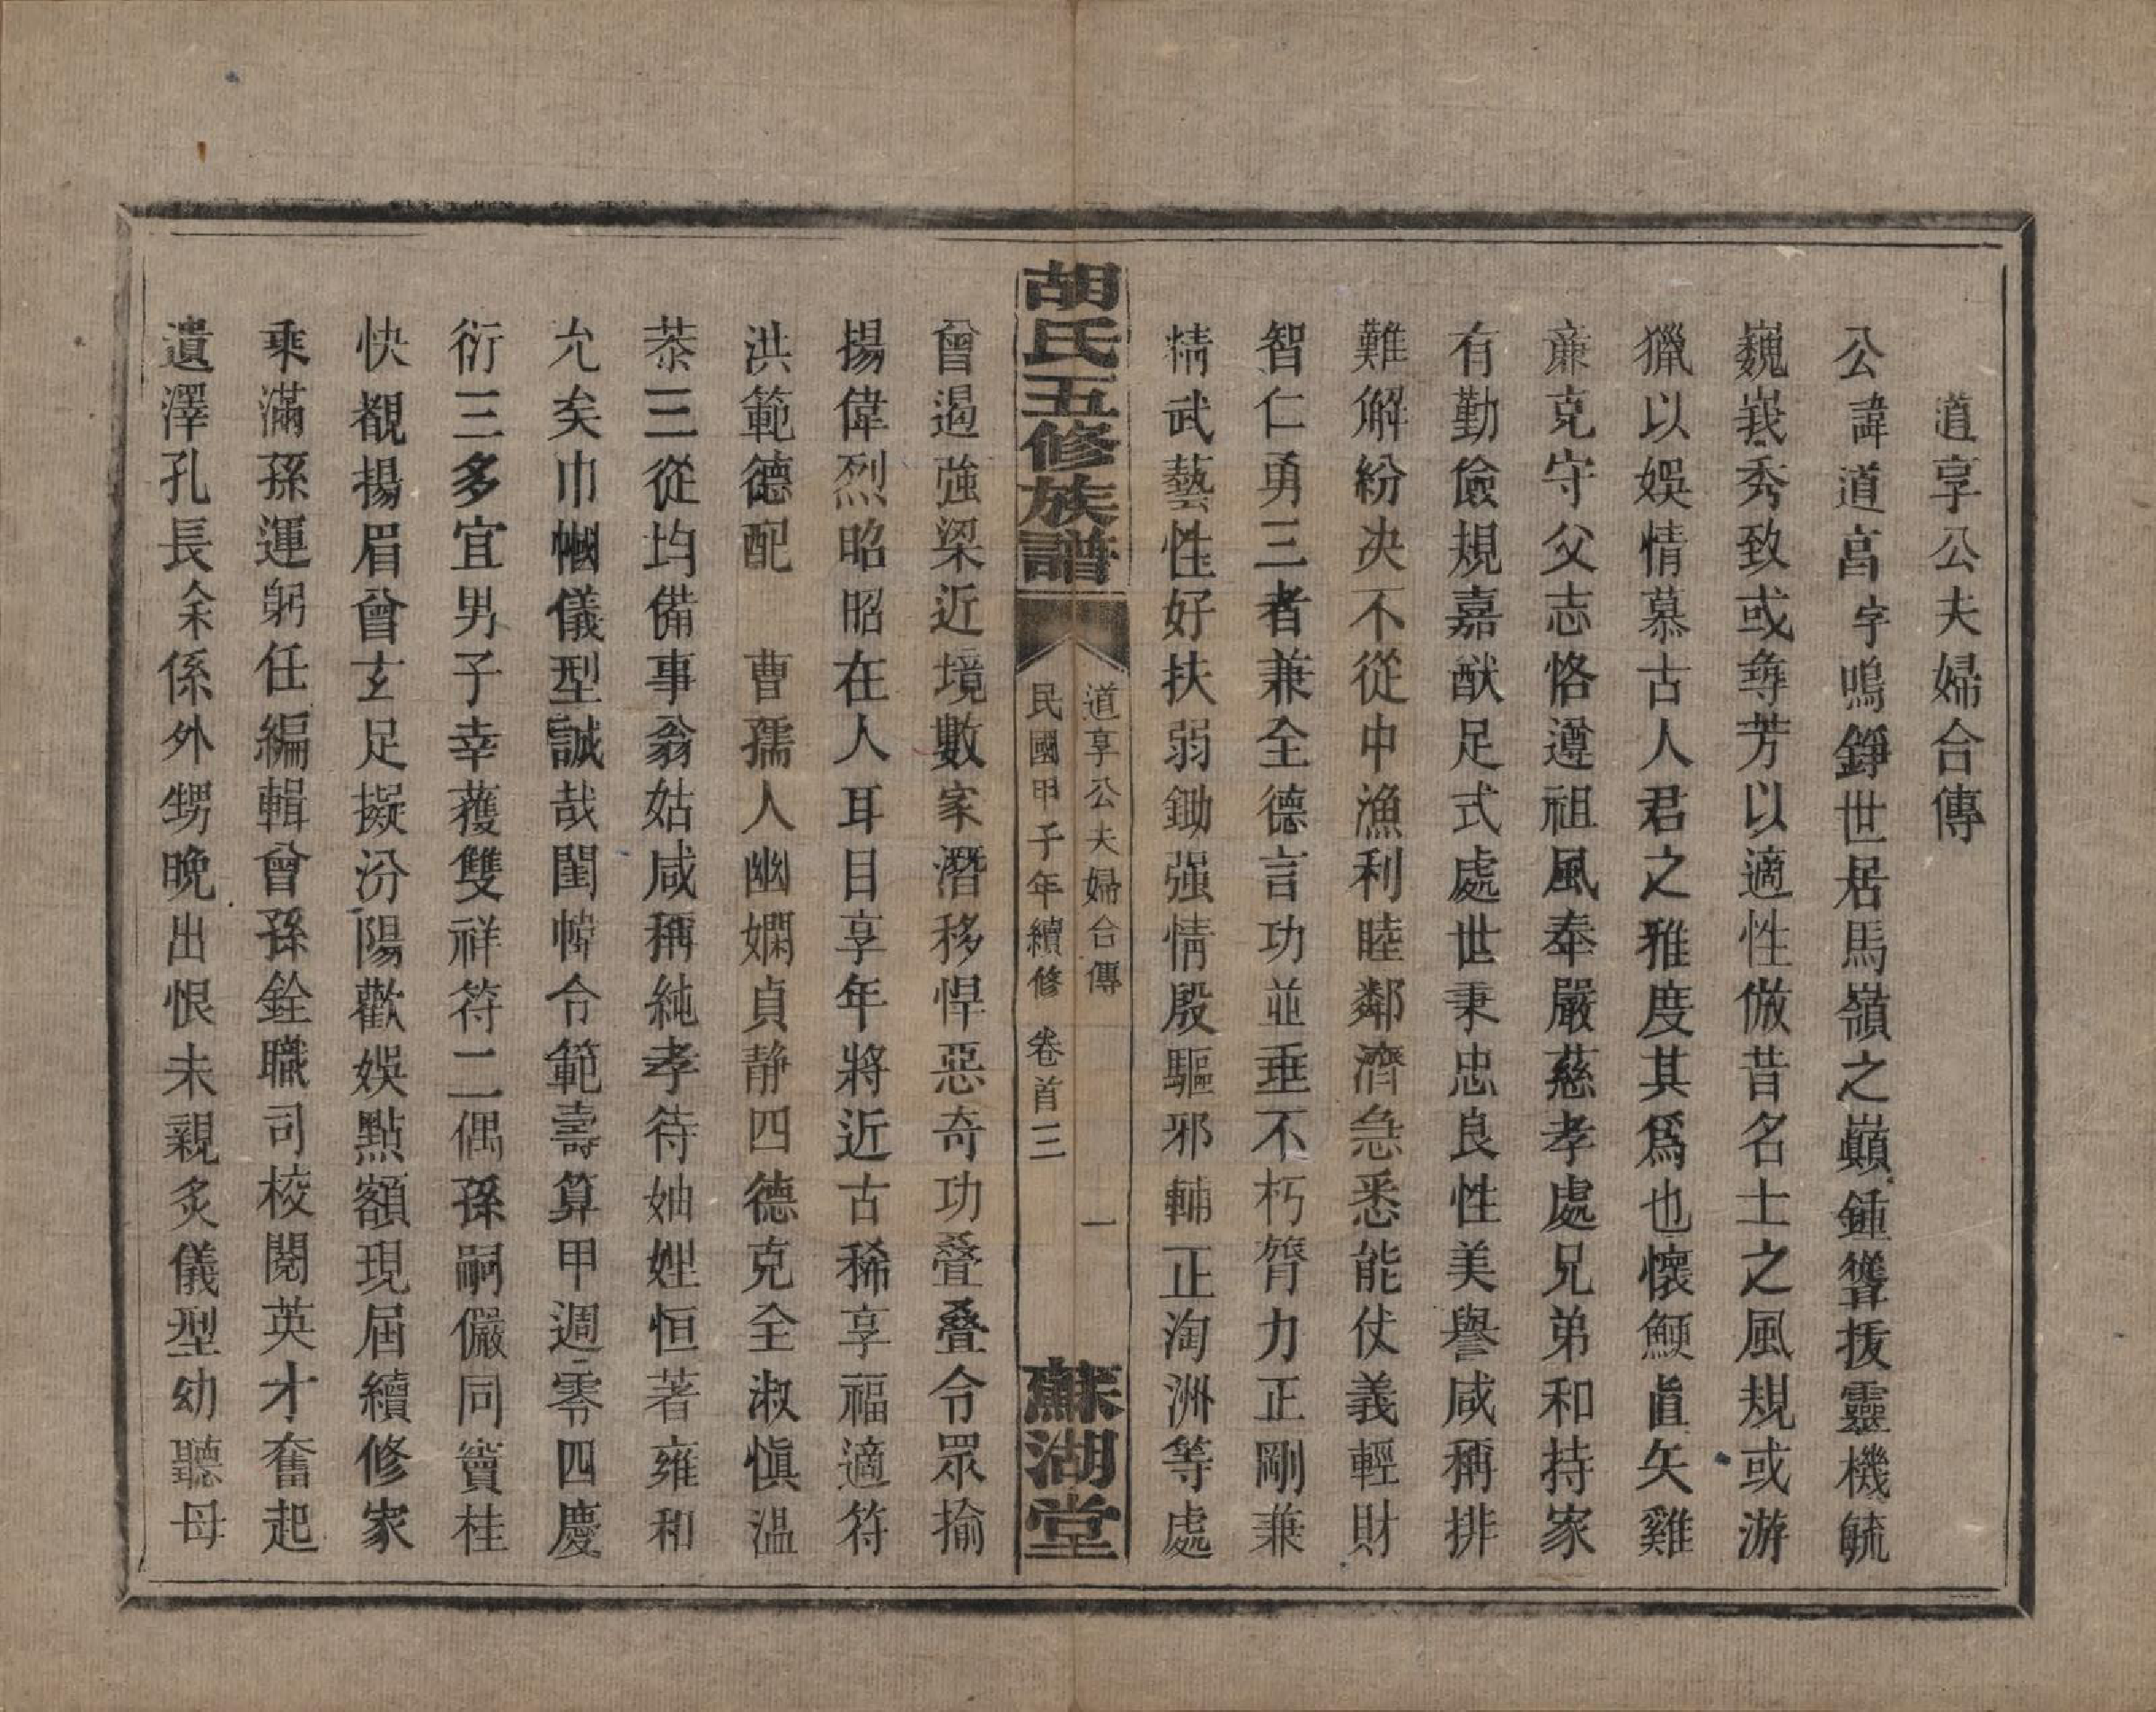 道享公夫婦合傳
公諱道亯字鳴錚世居馬嶺之巔鍾聳拔靈機毓
巍峩秀致或尋芳以適性倣昔名士之風規或游
獵以娛情慕古人君之雅度其爲也懷鯁直矢雞
廉克守父志恪遵祖風奉嚴慈孝處兄弟和持家
有勤儉規嘉猷足式處世秉忠良性美譽咸稱排
難解紛决不從中漁利睦鄰濟急悉能仗義輕財
智仁勇三者兼全德言功並垂不朽膂力正剛兼
精武藝性好扶弱鋤强情殷驅邪輔正淘洲等處
胡氏五修族譜
道享公夫婦合傳 一
民國甲子年續修 卷首三
蘇湖堂
曾遏強梁近境數家潛移悍惡奇功疊疊令眾揄
揚偉烈昭昭在人耳目享年將近古稀享福適符
洪範德配 曹孺人幽嫻貞静四德克全淑愼溫
恭三從均備事翁姑咸稱純孝待妯娌恒著雍和
允矣巾幗儀型誠哉閨幃令範壽算甲週零四慶
衍三多宜男子幸蒦雙祥符二偶孫嗣儼同竇桂
快覩揚眉曾玄足擬汾陽歡娛點額現屆續修家
乘滿孫運躬任編輯曾孫銓職司校閱英才奮起
遺澤孔長余係外甥晚出恨未親炙儀型幼聽母